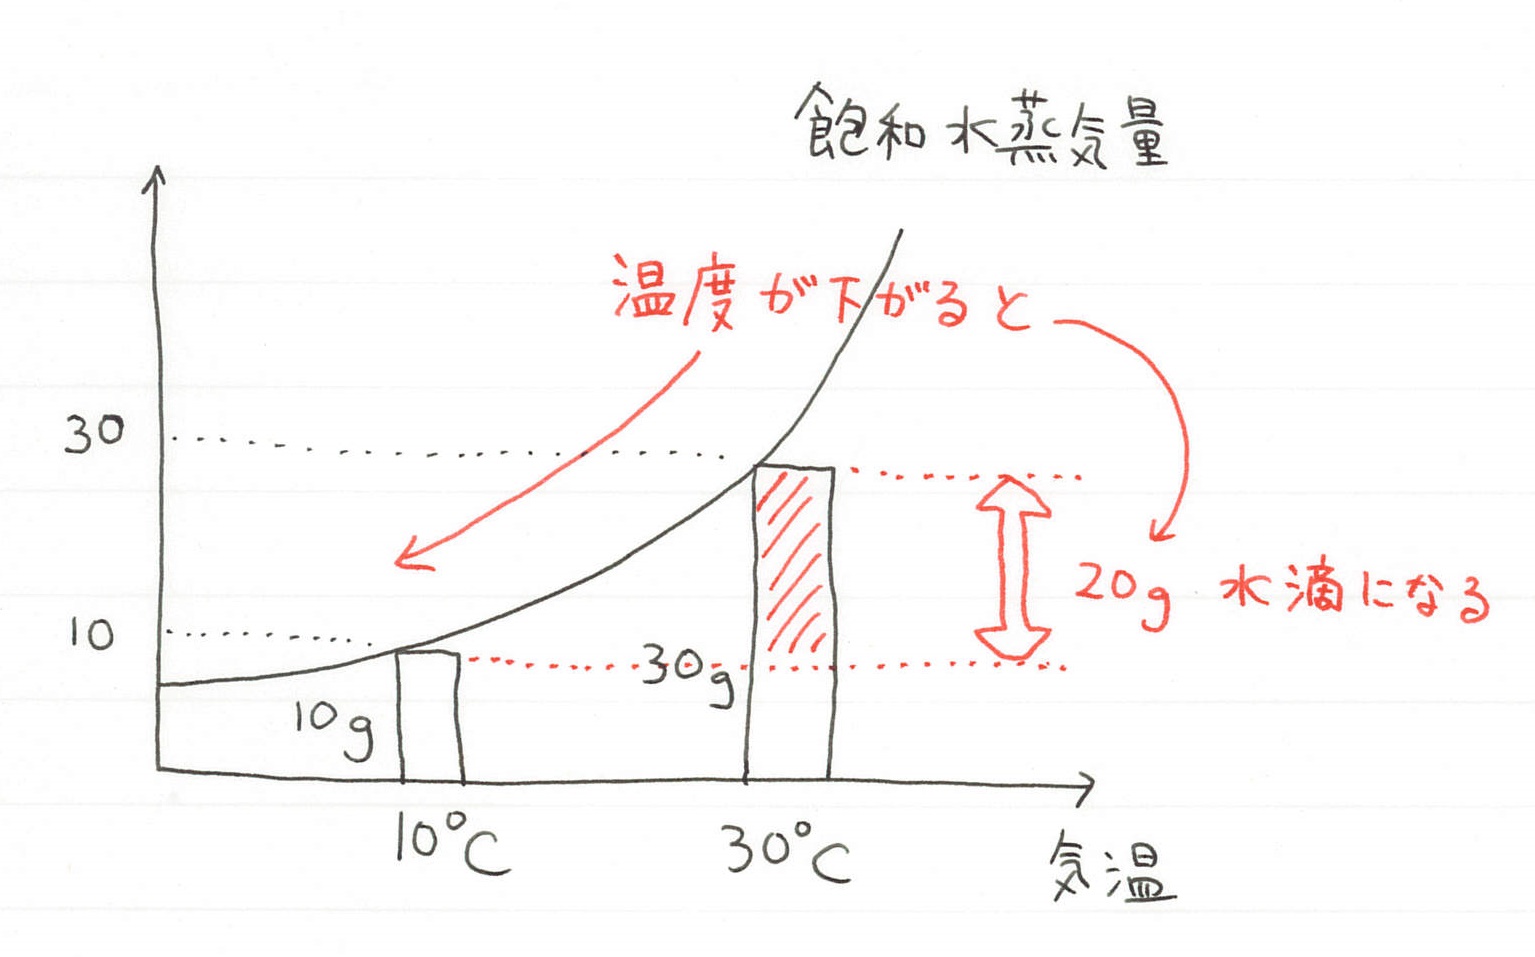 飽和水蒸気量
温度が下がると
30
20g 水滴になる
10
30g
10g
10℃
30℃
気温